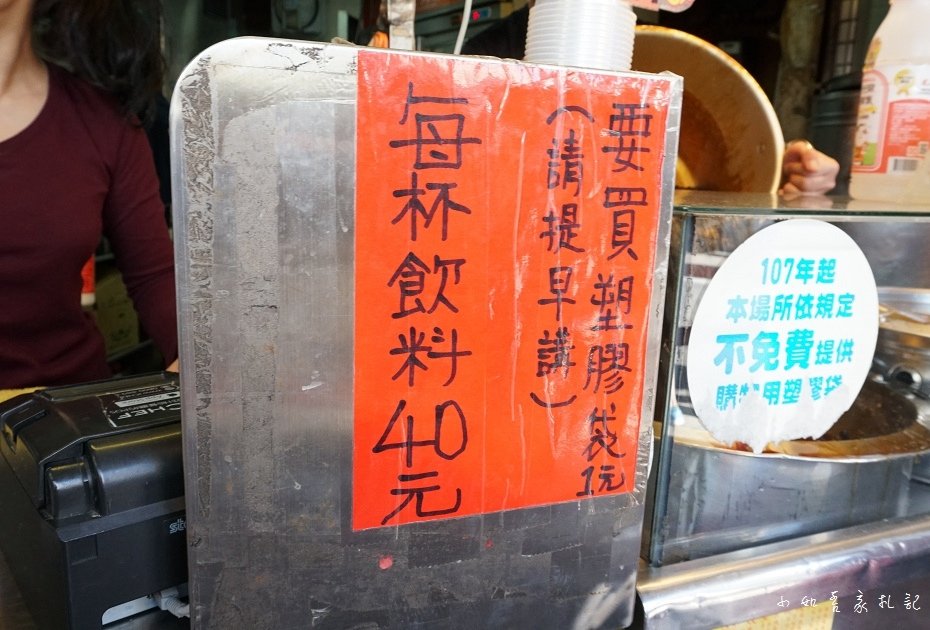 要買塑膠袋1元
(請提早講)
每杯飲料40元
107年起
本場所依規定
不免費提供
購物用塑膠袋
CHEF
小如吾家札記